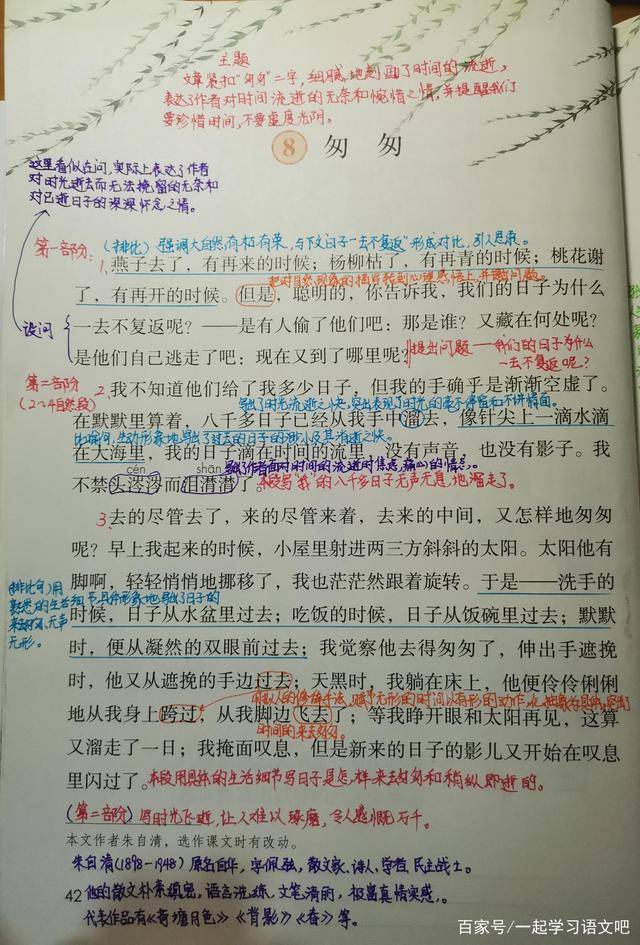 主题
文章紧扣“匆匆”二字，细腻地刻画了时间的流逝，
表达了作者对时间流逝的无奈和惋惜之情，并提醒我们
要珍惜时间，不要虚度光阴。
8 匆匆
这里看似在问，实际上表达了作者
对时光逝去而无法挽留的无奈和
对已逝日子的深深怀念之情。
第一部分：
（排比）强调大自然有枯有荣，与下文“日子一去不复返”形成对比，引人思索。
1、燕子去了，有再来的时候；杨柳枯了，有再青的时候；桃花谢
把对自然现象的描写转到心理感悟上，并提出问题。
了，有再开的时候。但是，聪明的，你告诉我，我们的日子为什么
设问
一去不复返呢？——是有人偷了他们吧：那是谁？又藏在何处呢？
是他们自己逃走了吧：现在又到了哪里呢？
提出问题——我们的日子为什么
一去不复返呢？
第二部分
（2~4自然段）
2、我不知道他们给了我多少日子，但我的手确乎是渐渐空虚了。
写出了时光流逝之快，突出表现了时光的毫不停留和不讲情面。
在默默里算着，八千多日子已经从我手中溜去，像针尖上一滴水滴
比喻句，生动形象地写出了过去的日子的渺小及其消逝之快。
在大海里，我的日子滴在时间的流里，没有声音，也没有影子。我
cén shān
写出了作者面对时间的流逝时焦虑、痛心的情态。
不禁头涔涔而泪潸潸了。
本段写“我”的八千多日子无声无息地溜走了。
3、去的尽管去了，来的尽管来着，去来的中间，又怎样地匆匆
呢？早上我起来的时候，小屋里射进两三方斜斜的太阳。太阳他有
脚啊，轻轻悄悄地挪移了，我也茫茫然跟着旋转。于是——洗手的
（排比句）用
熟悉的生活细节具体形象地写出了日子的
来去匆匆、无声
无形。
时候，日子从水盆里过去；吃饭的时候，日子从饭碗里过去；默默
时，便从凝然的双眼前过去；我觉察他去得匆匆了，伸出手遮挽
时，他又从遮挽的手边过去；天黑时，我躺在床上，他便伶伶俐俐
用拟人的修辞手法，赋予无形的时间以有形的动作，
地从我身上跨过，从我脚边飞去了；等我睁开眼和太阳再见，这算
时间的来去匆匆。
又溜走了一日；我掩面叹息，但是新来的日子的影儿又开始在叹息
里闪过了。
本段用具体的生活细节写日子是怎样来去匆匆和稍纵即逝的。
（第二部分）写时光飞逝，让人难以琢磨，令人感慨万千。
本文作者朱自清，选作课文时有改动。
朱自清（1898—1948）原名自华，字佩弦，散文家、诗人、学者、民主战士。
42
他的散文朴素缜密，语言洗练，文笔清丽，极富真情实感。
代表作品有《荷塘月色》《背影》《春》等。
百家号/一起学习语文吧